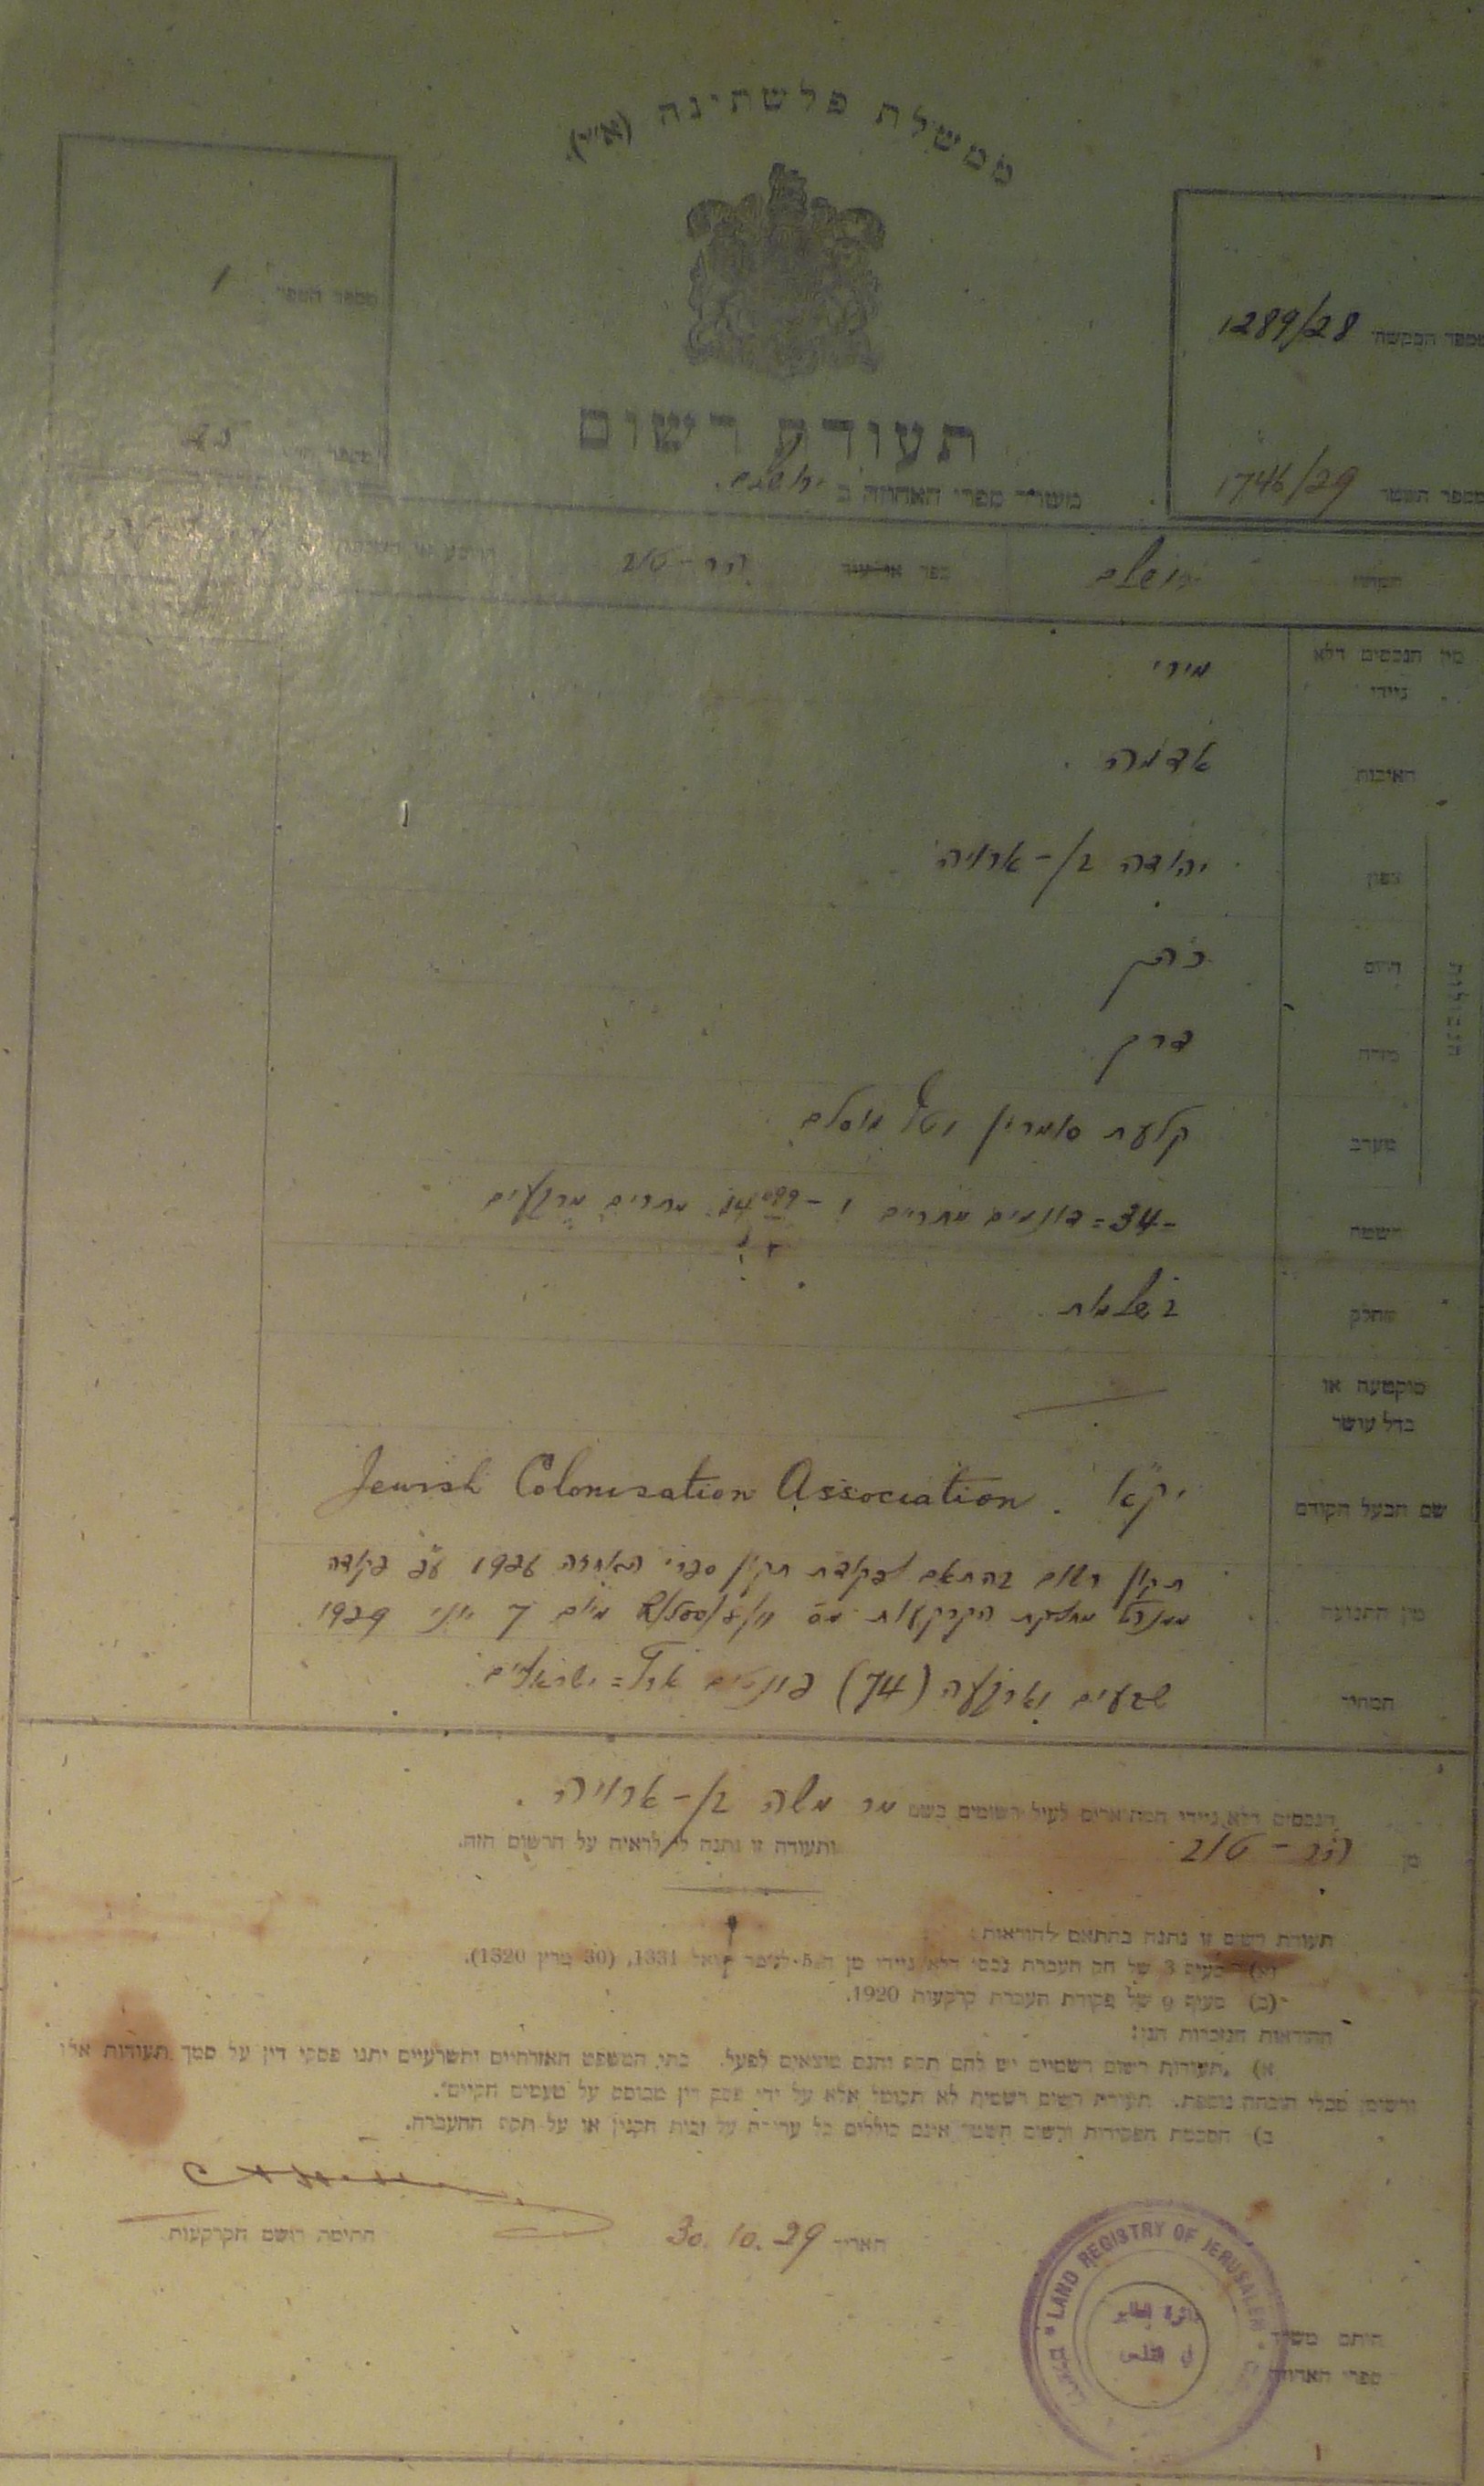 ממשלת פלשתינה (א״י)
מספר הבקשה 1289/28
מספר השטר 1746/29
מספר הספר 1
תעודת רשום
משרד ספרי האחוזה ב ירושלם.
ירושלם
כפר או עיר הר-טוב
מין הנכסים דלא ניידי מירי
האיכות אדמה.
הגבולות
צפון יהודה בן-ארויה
דרום כהן
מזרח דרך
מערב קלעת
השטח 34= דונמים מתרים ו- מתרים מרבעים
החלק בשלמות
מוקטעה או
בדל עושר
שם הבעל הקודם יק״א. Jewish Colonisation Association
מין התנועה תקון רשום בהתאם לפקודת תקון ספרי האחוזה 1926 ע״פ פקודה
ממנהל מחלקת הקרקעות מס׳ מיום 7 יוני 1929
המחיר שבעים וארבעה (74) פונטים ארץ=ישראלים.
הנכסים דלא ניידי המתוארים לעיל רשומים בשם מר משה בן-ארויה.
מן הר-טוב ותעודה זו נתנה לו לראיה על הרשום הזה.
תעודת רשום זו נתנה בהתאם להוראות:
(א) סעיף 3 של חק העברת נכסי דלא ניידי מן ה 5 1331, (30 מרץ 1320).
(ב) סעיף 9 של פקודת העברת קרקעות 1920.
ההוראות הנזכרות הנן:
א) תעודות רשום רשמיים יש להם תקף והנם מוצאים לפעל. בתי המשפט האזרחיים והשרעיים יתנו פסקי דין על סמך תעודות אלו
ורשומן מבלי הוכחה נוספת. תעודת רשום רשמית לא תבוטל אלא על ידי פסק דין מבוסס על טעמים חקיים.
ב) הסכמת הפקידות ורשום השטר אינם כוללים כל ערובה על זכות הקנין או על תקף ההעברה.
תאריך 30.10.29
חתימת רושם הקרקעות
חותם משרד
ספרי האחוזה
LAND REGISTRY OF JERUSALEM